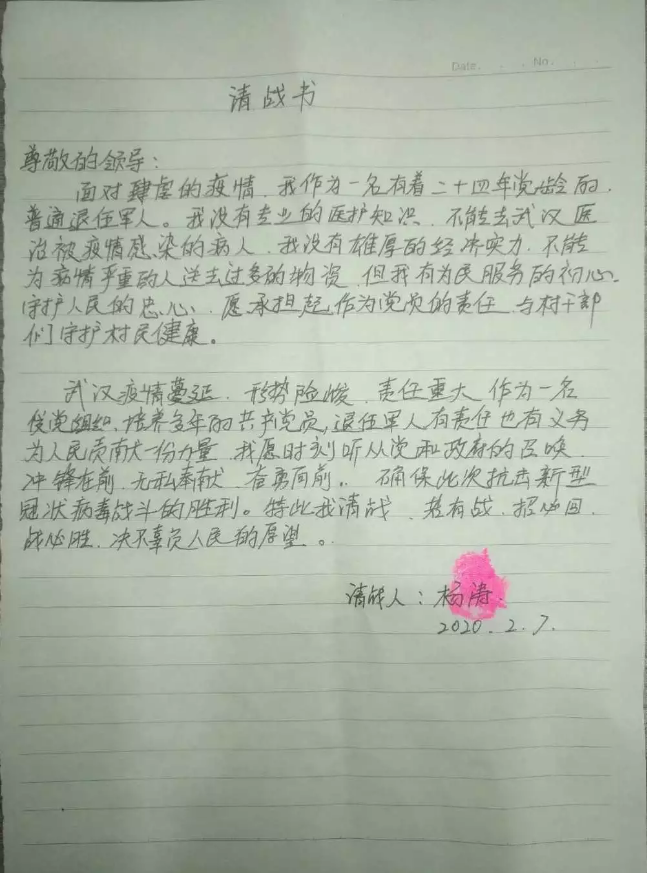 Date. . . No. . .
请战书
尊敬的领导：
面对肆虐的疫情、我作为一名有着二十四年党龄的、
普通退伍军人。我没有专业的医护知识、不能去武汉医
治被疫情感染的病人、我没有雄厚的经济实力、不能
为病情严重的人送去过多的物资、但我有为民服务的初心、
守护人民的忠心、愿承担起作为党员的责任、与村干部
们守护村民健康。
武汉疫情蔓延、形势险峻、责任重大、作为一名
受党组织、培养多年的共产党员，退伍军人有责任也有义务
为人民贡献一份力量、我愿时刻听从党和政府的召唤、
冲锋在前、无私奉献、奋勇向前。确保此次抗击新型
冠状病毒战斗的胜利。特此我请战、若有战、招必回、
战必胜、决不辜负人民的厚望。
请战人：杨涛
2020.2.7.